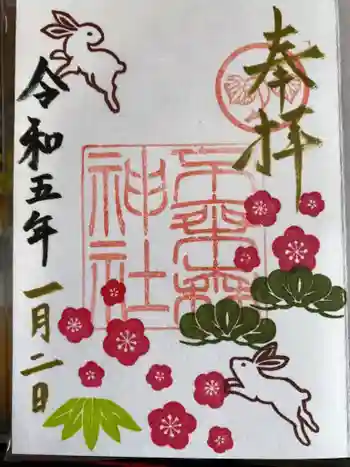 奉拝
神社
令和五年一月二日